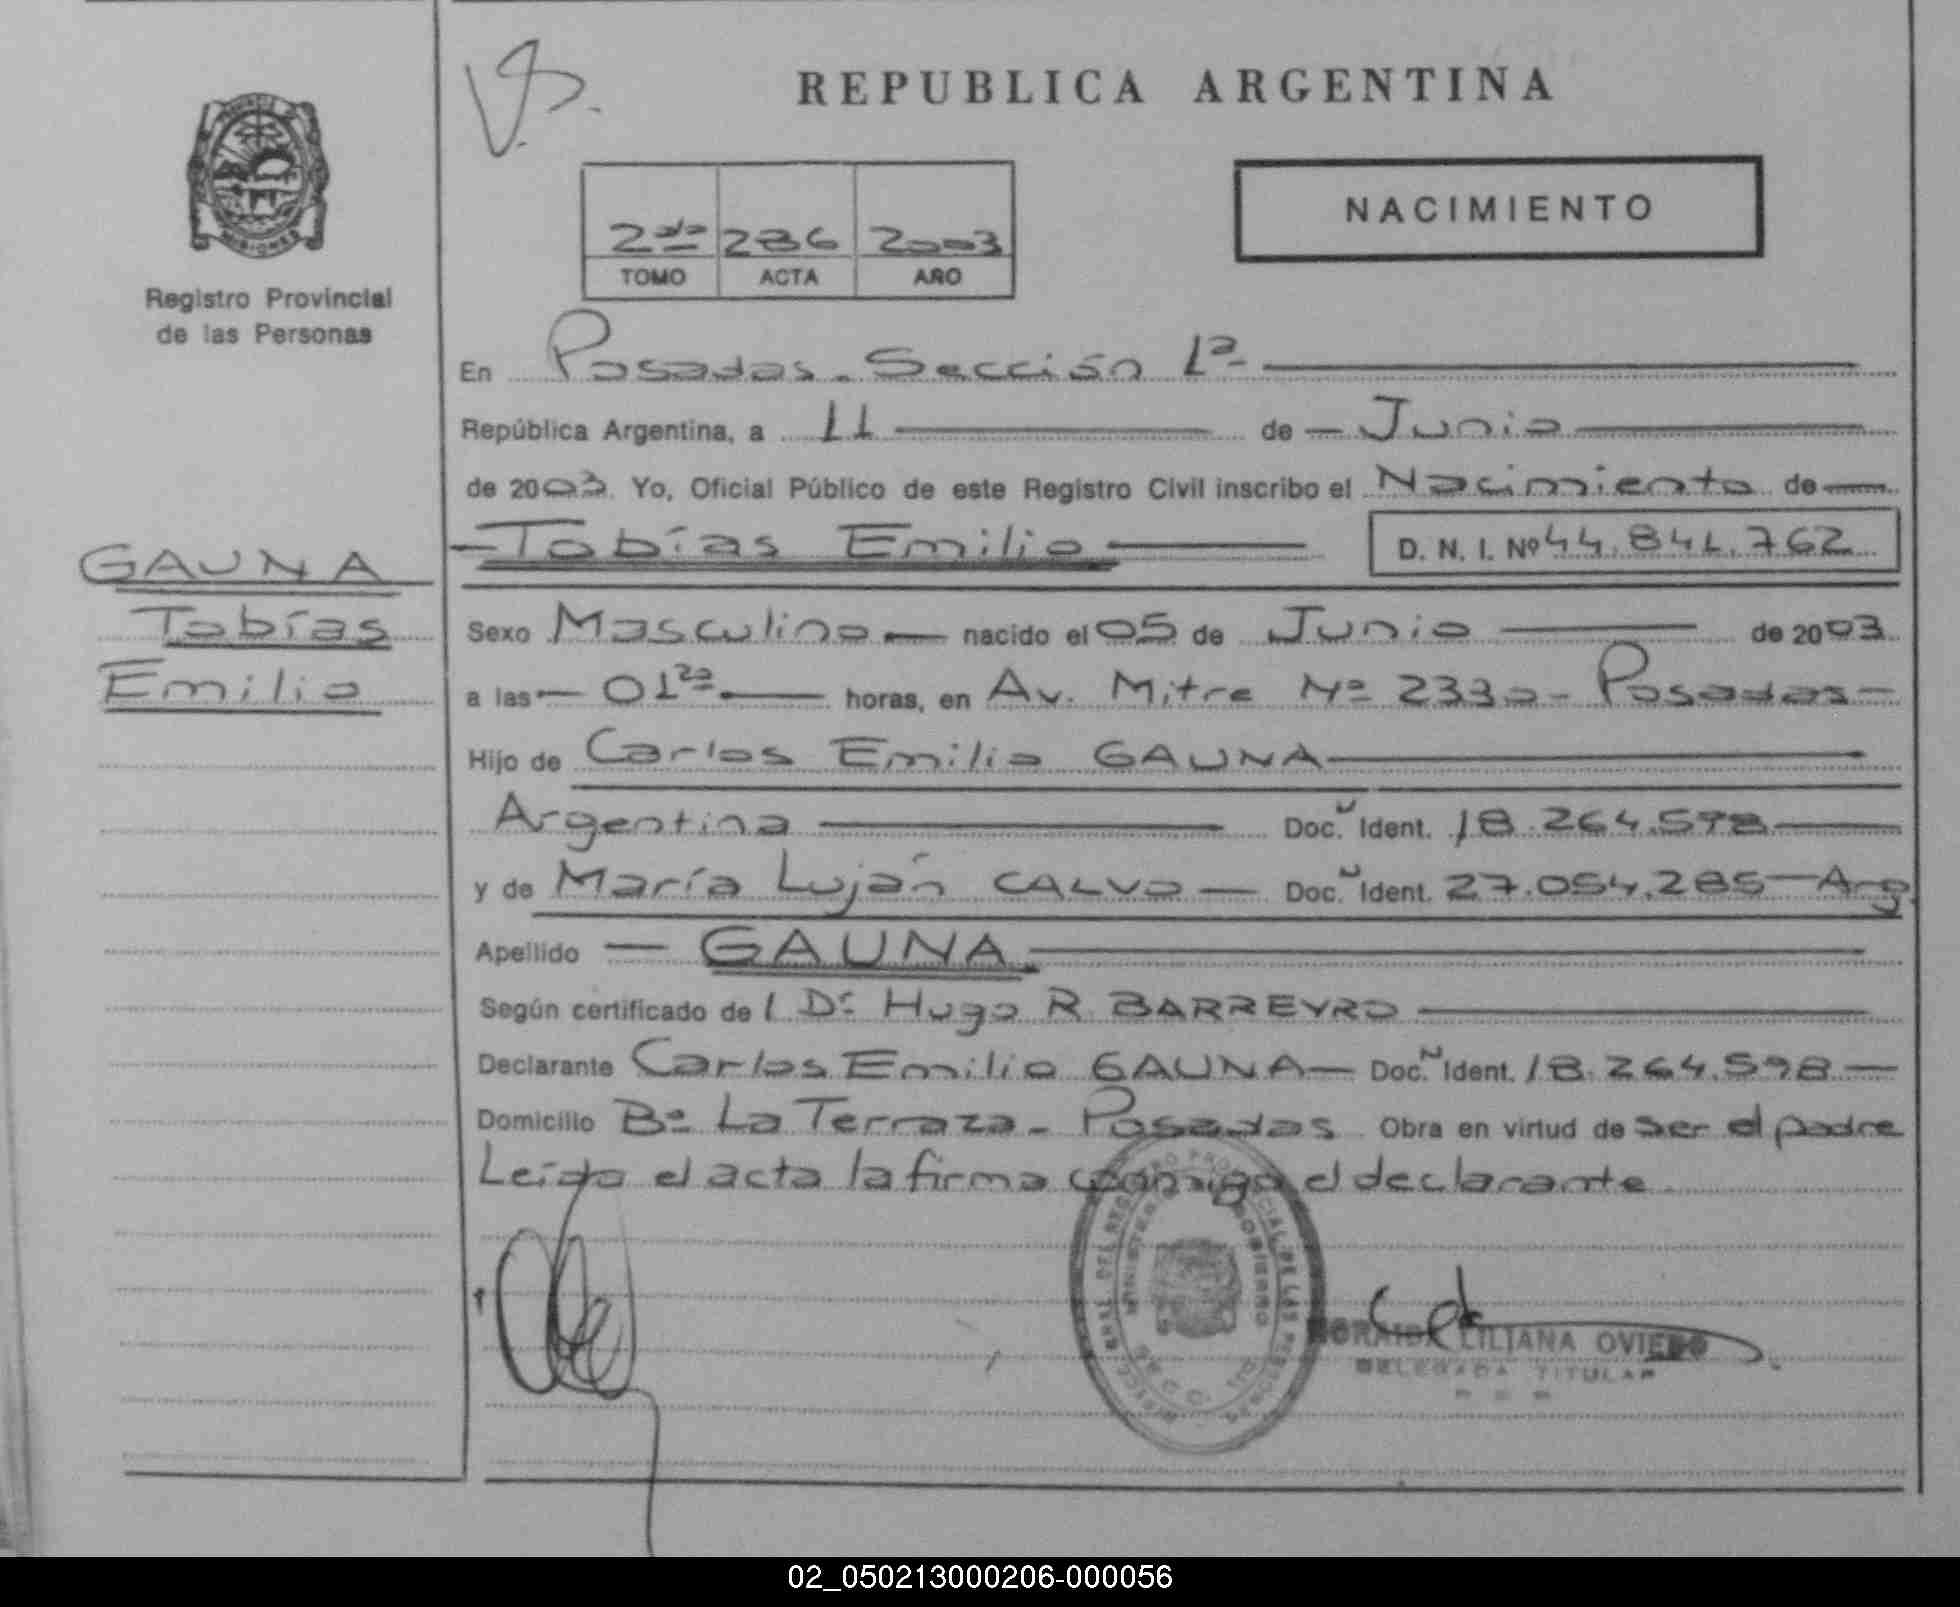 REPUBLICA ARGENTINA
NACIMIENTO
2do 286 2003
TOMO ACTA AÑO
MISIONES
Registro Provincial
de las Personas
GAUNA
Tobías
Emilio
En Posadas - Sección 1ª
República Argentina, a 11 de Junio
de 2003. Yo, Oficial Público de este Registro Civil inscribo el Nacimiento de
Tobías Emilio D. N. I. Nº 44.841.762
Sexo Masculino nacido el 05 de Junio de 2003
a las 01 horas, en Av. Mitre Nº 2330 - Posadas -
Hijo de Carlos Emilio GAUNA
Argentina Doc. N Ident. 18.264.598
y de María Luján CALVO Doc. N Ident. 27.054.285 - Arg.
Apellido GAUNA
Según certificado de l Dr. Hugo R. BARREYRO
Declarante Carlos Emilio GAUNA Doc. N Ident. 18.264.598
Domicilio Bº La Terraza - Posadas Obra en virtud de ser el padre
Leída el acta la firma conmigo el declarante
LILIANA OVIEDO
DELEGADA TITULAR
02_050213000206-000056